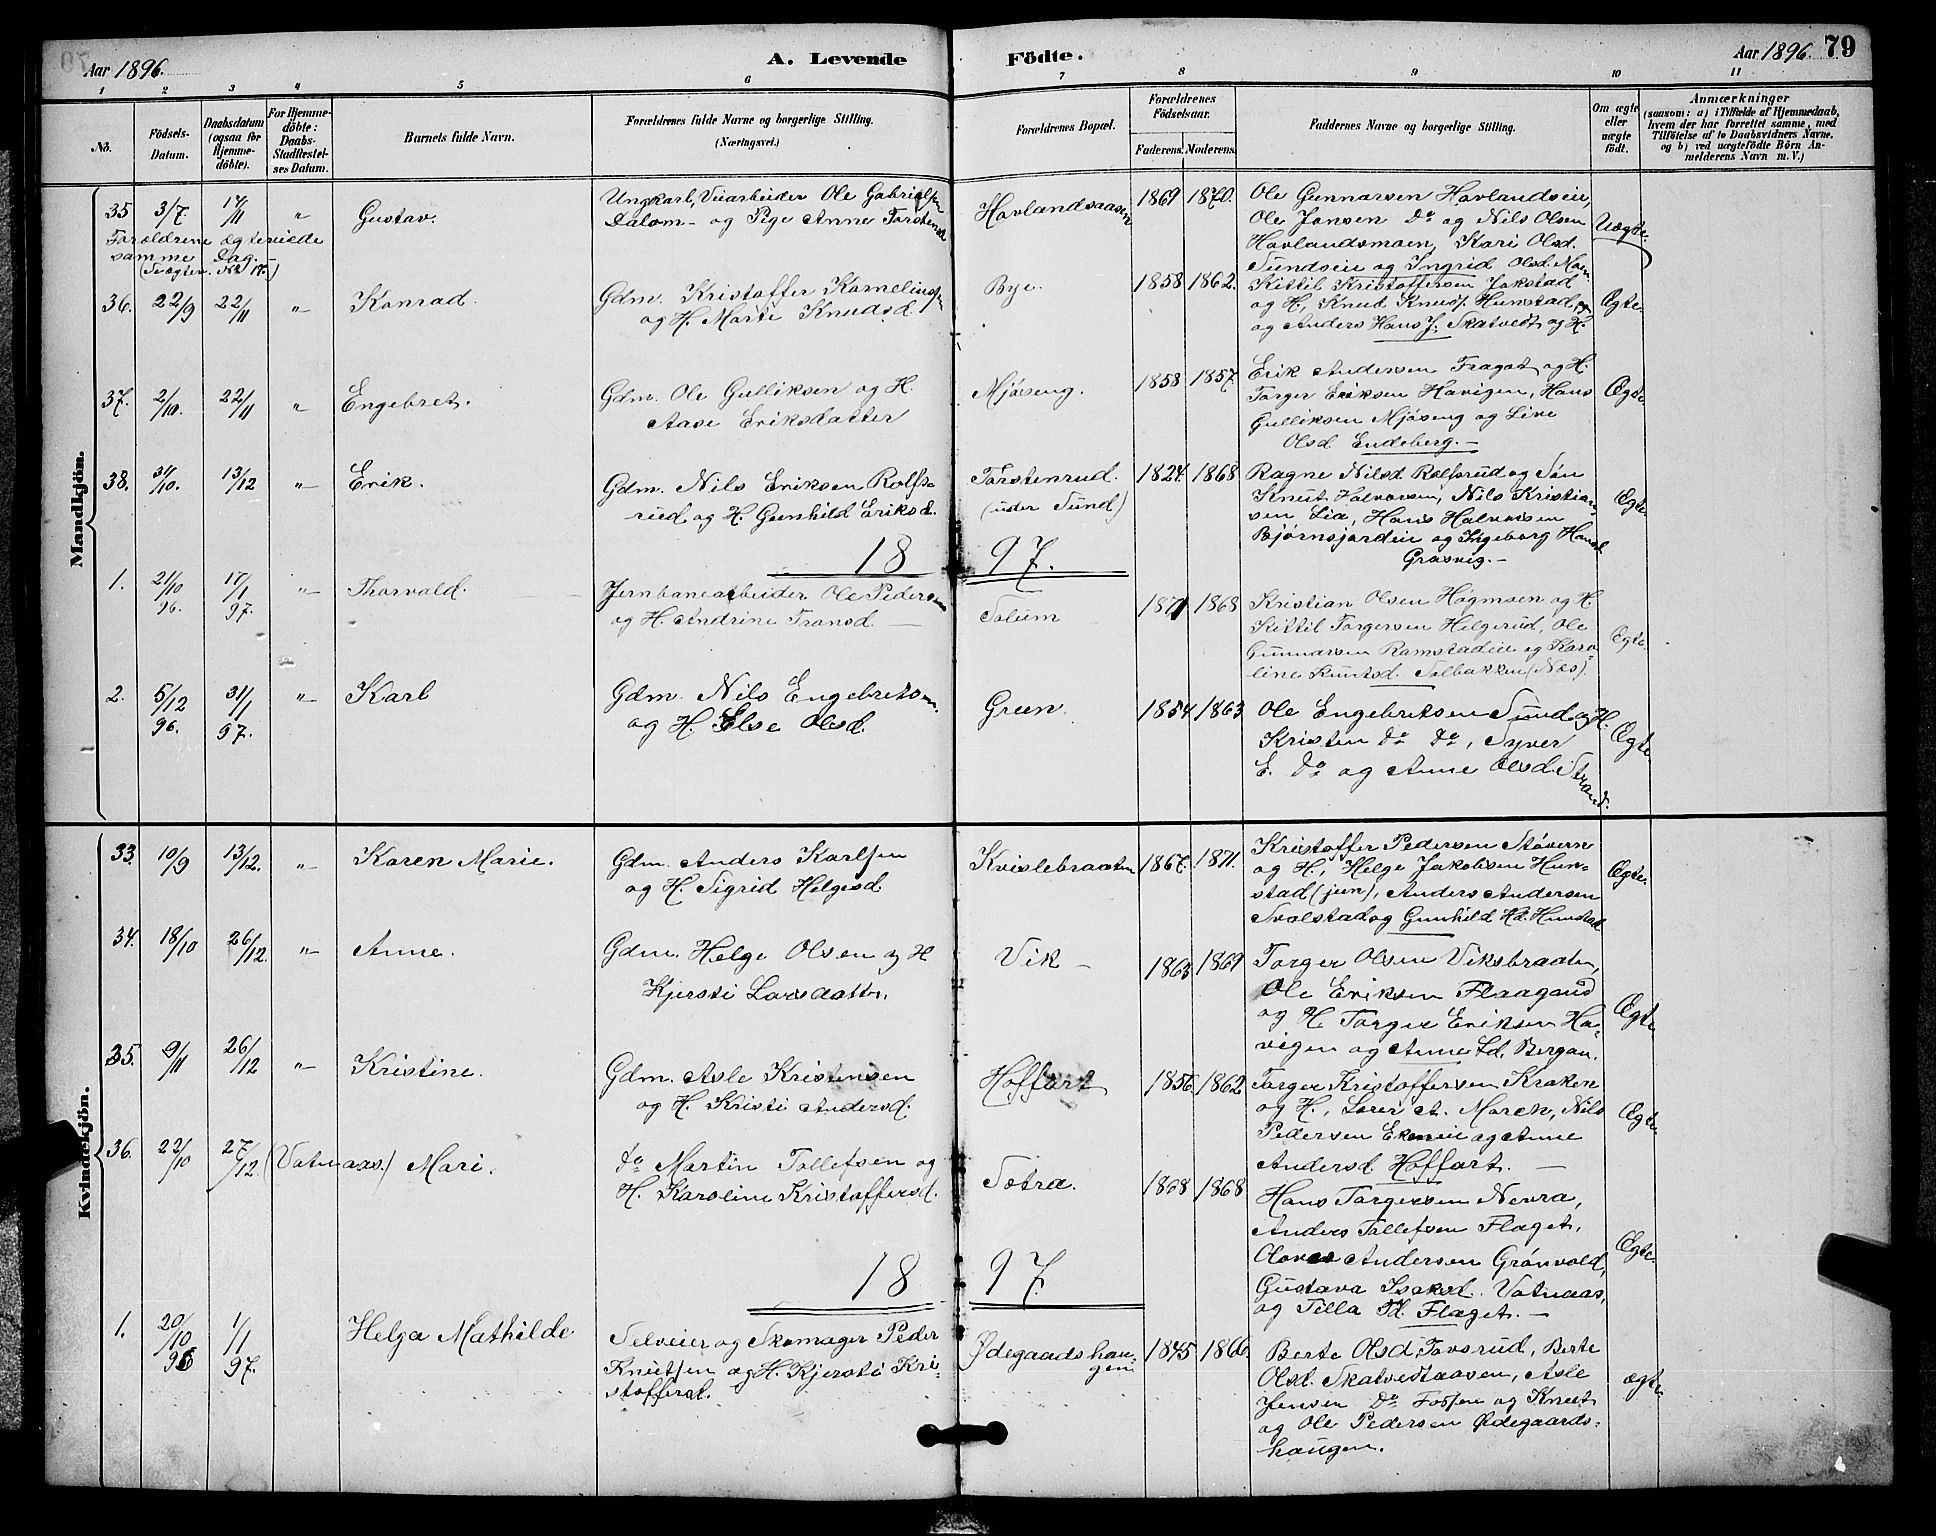 Aar 1896. A. Levende Födte. Aar 1896. 79
1 2 3 4 5 6 7 8 9 10 11
No.
Födsels-
Datum.
Daabsdatum
(ogsaa for
Hjemme-
döbte).
For Hjemme-
döbte:
Daabs-
Stadfæstel-
ses Datum.
Barnets fulde Navn.
Forældrenes fulde Navne og borgerlige Stilling.
(Næringsvei.)
Forældrenes Bopæl.
Forældrenes
Födselsaar.
Faderens. Moderens.
Faddernes Navne og borgerlige Stilling.
Om ægte
eller
uægte
födt.
Anmærkninger
(saasom: a) i Tilfælde af Hjemmedaab,
hvem der har forrettet samme, med
Tilföielse af to Daabsvidners Navne,
og b) ved uægtefödte Börn An-
melderens Navn m. V.)
Mandkjön.
35 3/7. 17/11 " Gustav.
Forældrene ægteviede
samme Dag.-
Ungkarl, Veiarbeider Ole Gabrielsen
Dalom- og Pige Anne Torstensd.
Havlandsaasen 1869 1870.
Ole Gunnarsen Havlandseie,
Ole Jonsen Do og Nils Olsen
Havlandsmoen, Kari Olsd.
Sundseie og Ingrid Olsd. Moen.
Uægte.
36. 22/9 22/11 " Konrad.
Gdm. Kristoffer Kornelius
og H. Marte Knudsd.
Bye. 1858 1862.
Kittil Kristoffersen Jokstad
og H., Knud Knuds. Hunstad og
og Anders Hans J. Skatvedt og H.
Ægte.
37. 2/10. 22/11 " Engebret.
Gdm. Ole Gulliksen og H.
Aase Eriksdatter
Mjøseng. 1858 1857.
Erik Andersen Fragot og H.
Torger Eriksen Havigen, Hans
Gulliksen Mjøseng og Live
Olsd. Endeberg.-
Ægte.
38. 31/10. 13/12 " Erik.
Gdm. Nils Eriksen Rolfs-
rud og H. Gunhild Eriksd.
Torstenrud.
(under Sund)
1824. 1868
Ragne Nilsd. Rolfsrud og Søn
Knut Halvorsen, Nils Kristian-
sen Lia, Hans Halvorsen
Bjørnsjordeie og Ingeborg Hansd.
Grasvig.-
Ægte.
18 97.
1. 21/10 96. 17/1 97. " Thorvald.
Jernbanearbeider Ole Pedersen
og H. Andrine Fransd.
Solum 1871 1868
Kristian Olsen Hagmoen og H.
Kittil Torgersen Helgerud, Ole
Gunnarsen Ramstadeie og Karo-
line Knutsd. Solbakken (Næs).
Ægte.
2. 5/12 96. 31/1 97. " Karl
Gdm. Nils Engebretsen
og H. Else Olsd.
Green. 1854 1863
Ole Engebretsen Sund og H.
Kristen Do Do, Syver
E. Do og Anne Olsd. Strand.
Ægte
Kvindekjön.
33. 10/9 13/12. " Karen Marie.
Gdm. Anders Karlsen
og H. Sigrid Helgesd.
Kvislebraaten 1867. 1871.
Kristoffer Pedersen Støveren
og H., Helge Jakobsen Hun-
stad (jun), Anders Andersen
Svolstad og Gunhild Hd. Hunstad
Ægte.
34. 18/10 26/12. " Anne.
Gdm. Helge Olsen og H
Kjersti Larsdatter.
Vik - 1863 1869
Torger Olsen Viksbraaten,
Ole Eriksen Flaagand
og H. Torger Eriksen Ha-
vigen og Anne Ld. Bergan.
Ægte
35. 9/11 26/12 " Kristine.
Gdm. Asle Kristensen
og H. Kristi Andersd.
Hoffart 1856. 1862
Torger Kristoffersen Kraken
og H., Lorer A. Moren, Nils
Pedersen Ekeneie og Anne
Andersd. Hoffart. -
Ægte.
36. 22/10 27/12. (Vatnaas.) Mari.
do Martin Tollefsen og
H. Karoline Kristoffersd.
Sotra. 1868 1868
Hans Torgersen Nevra,
Anders Tollefsen Flaget,
Oloves Andersen Grønvold,
Gustava Isaksd. Vatnaas,
og Tilla Td. Flaget.-
Ægte.
18 97.
1. 20/10 96 1/1 97. Helga Mathilde
Selveier og Skomager Peder
Knutsen og H. Kjersti Kri-
stoffersd.
Ødegaardshau-
gen
1845 1866
Berte Olsd. Tovsrud, Berte
Olsd. Skatvedtaasen, Asle
Jensen Do Fossen og Knut
og Ole Pedersen Ødegaards-
haugen.
ægte.